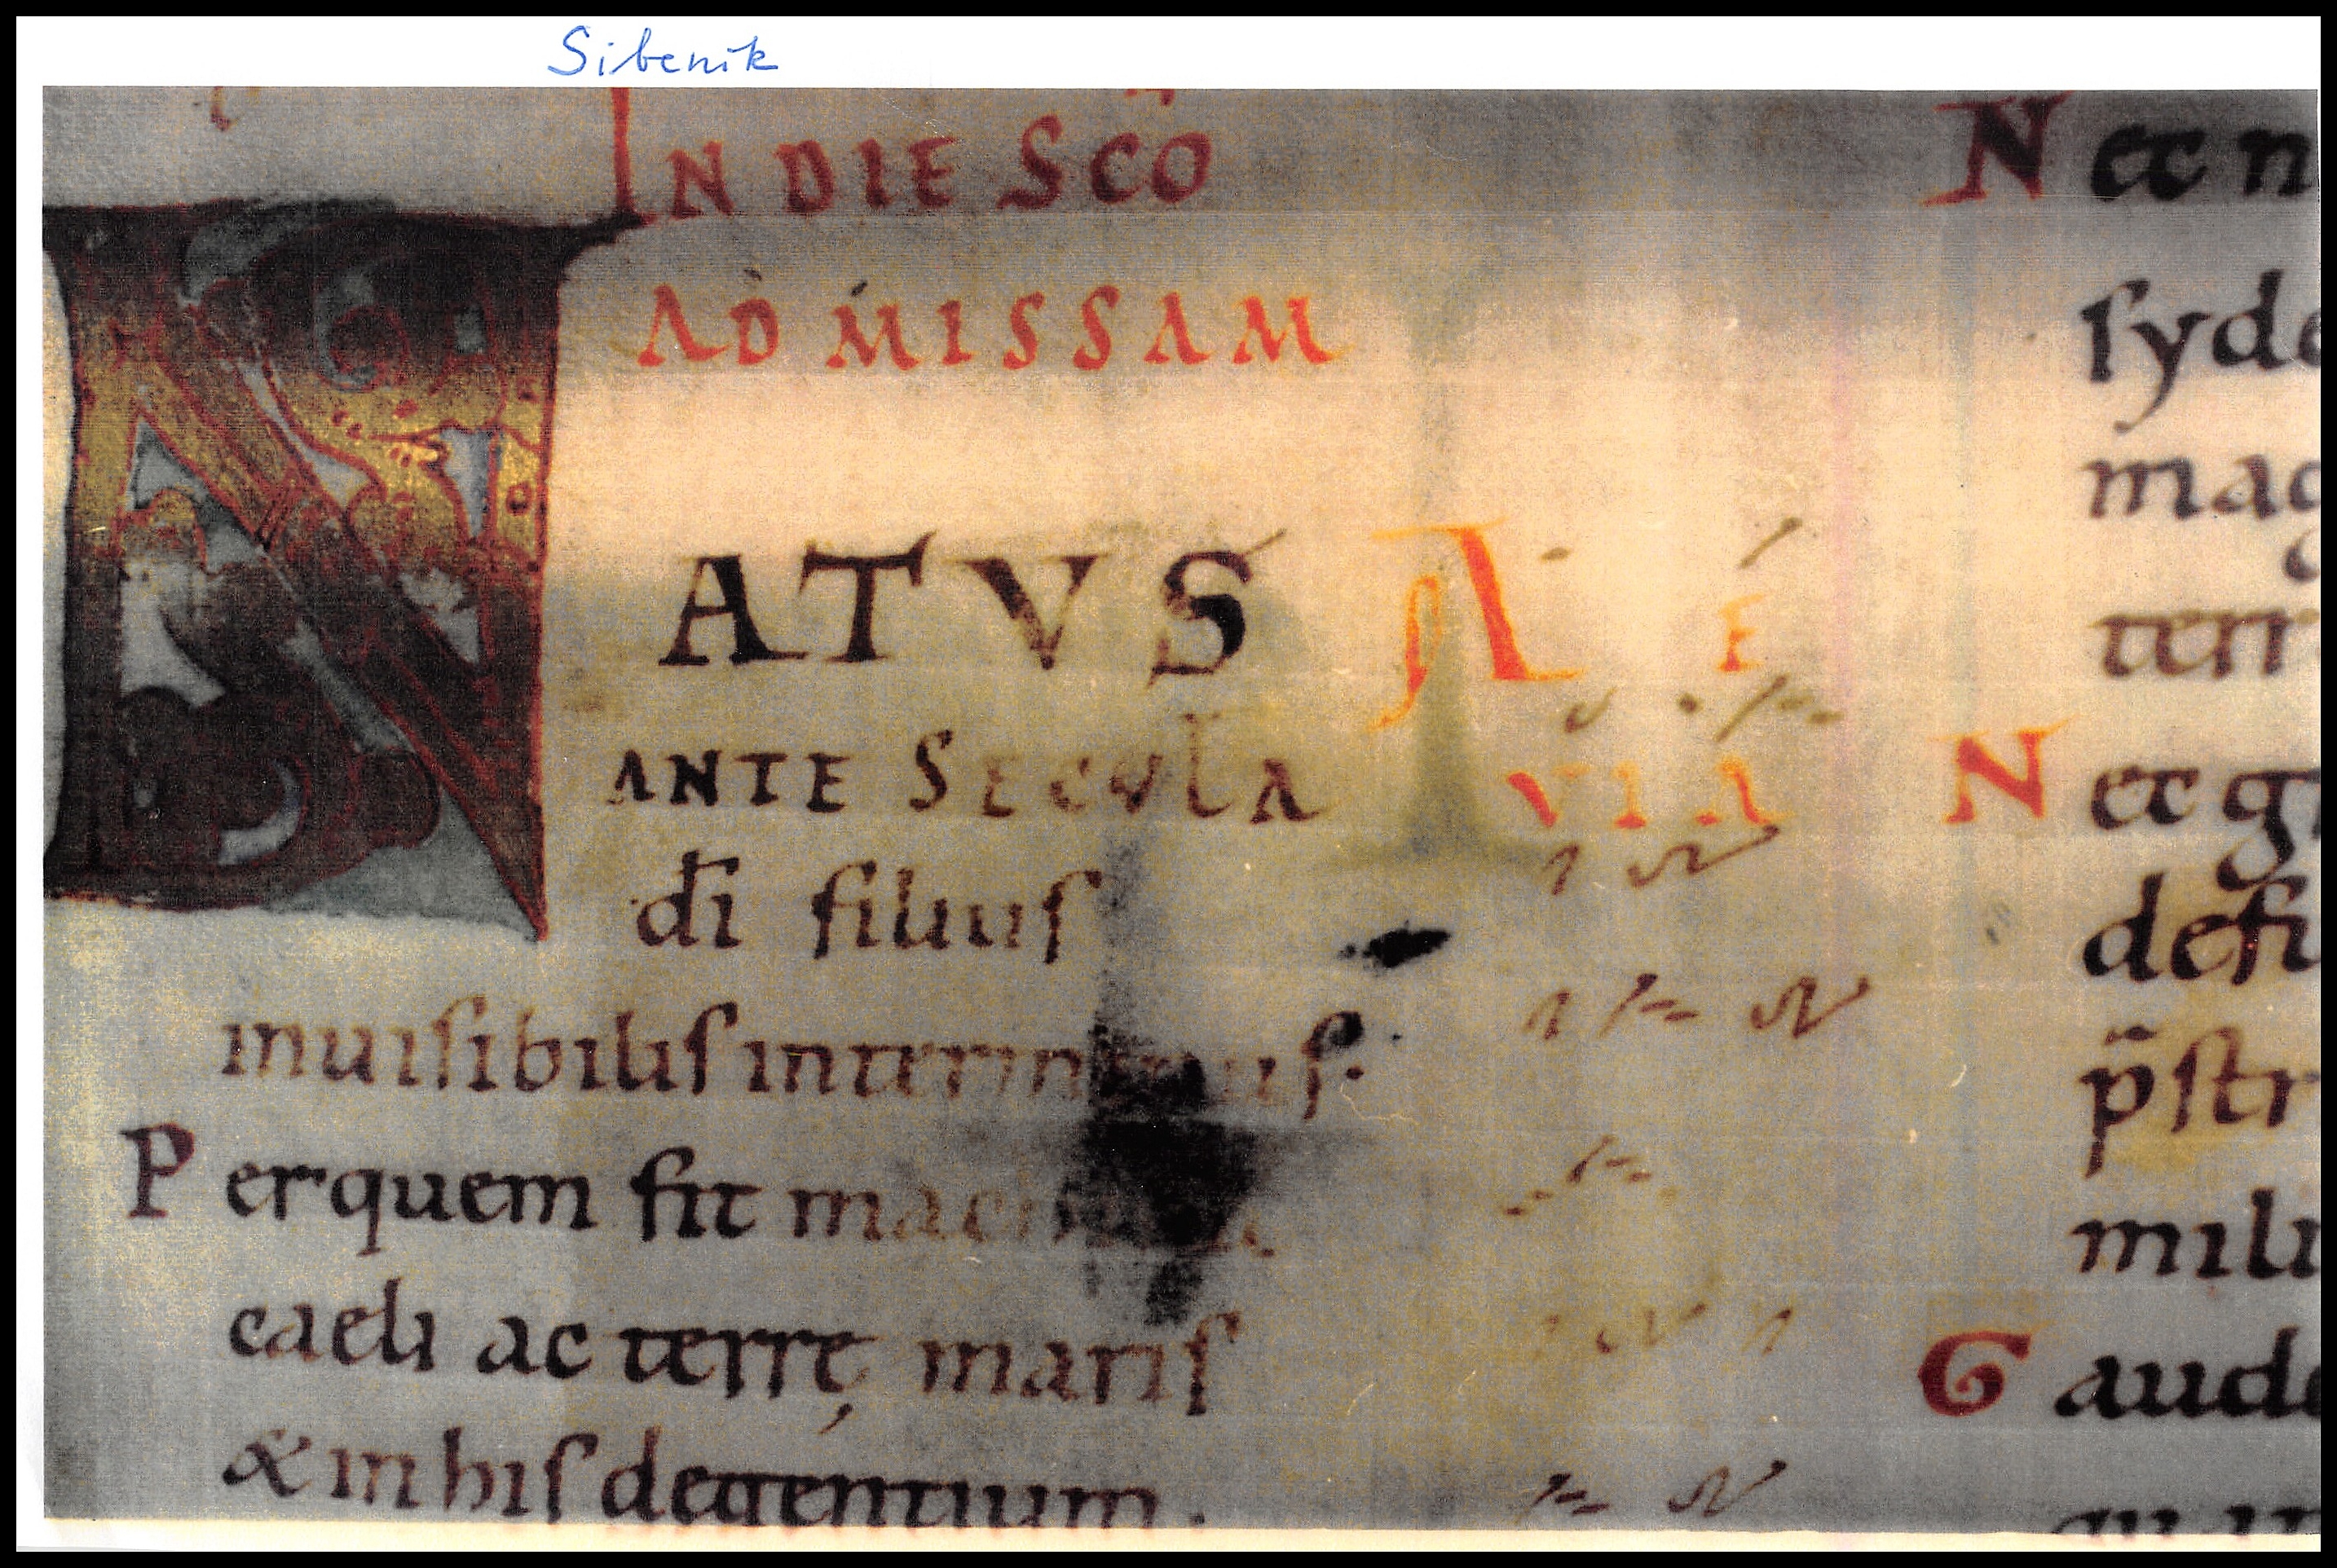 Sibenik
IN DIE SCO
AD MISSAM
NATVS A E
ANTE SECVLA VIA
di filius
inuisibilis
Per quem fit
caeli ac terrę maris
& in his degentium.
N ec n
syde
mag
terr
N ec g
defi
p̄str
mili
G aude